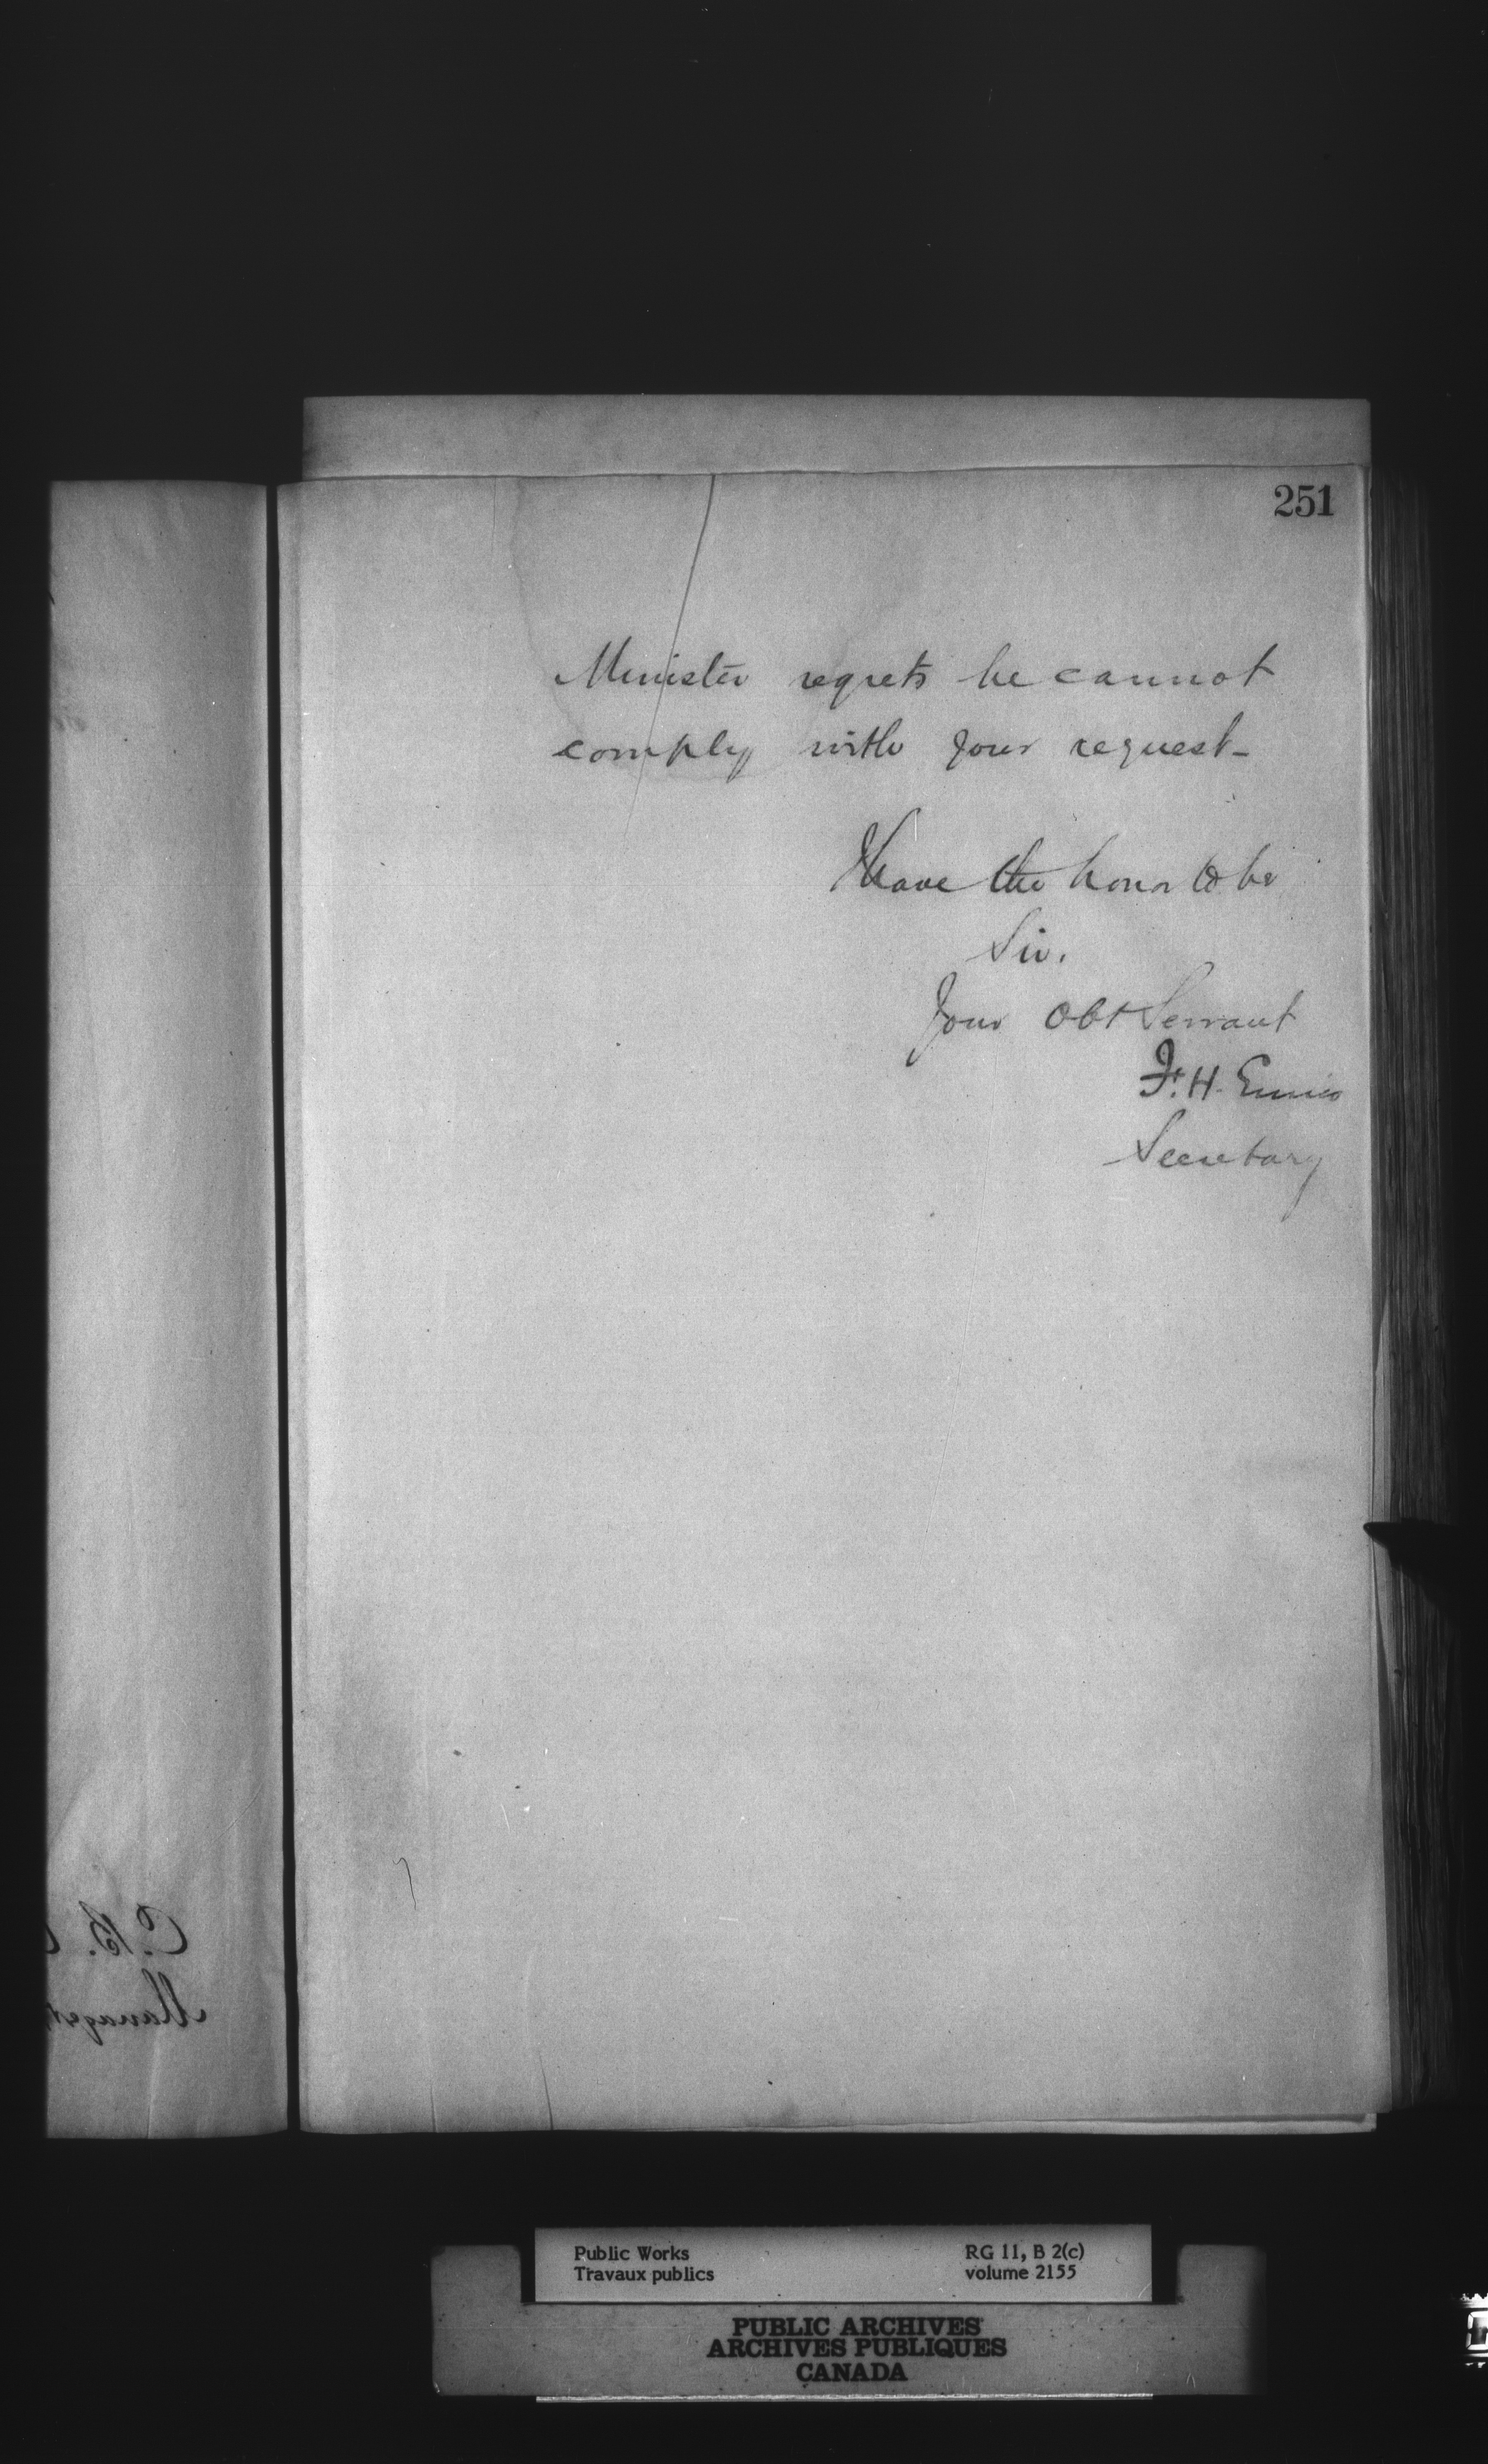 251
Minister regrets he cannot
comply with your request-
I have the honor to be
Sir.
Your Obt Servant
F. H. Ennis
Secretary
C. B.
Manager
Public Works
Travaux publics
RG 11, B 2(c)
volume 2155
PUBLIC ARCHIVES
ARCHIVES PUBLIQUES
CANADA